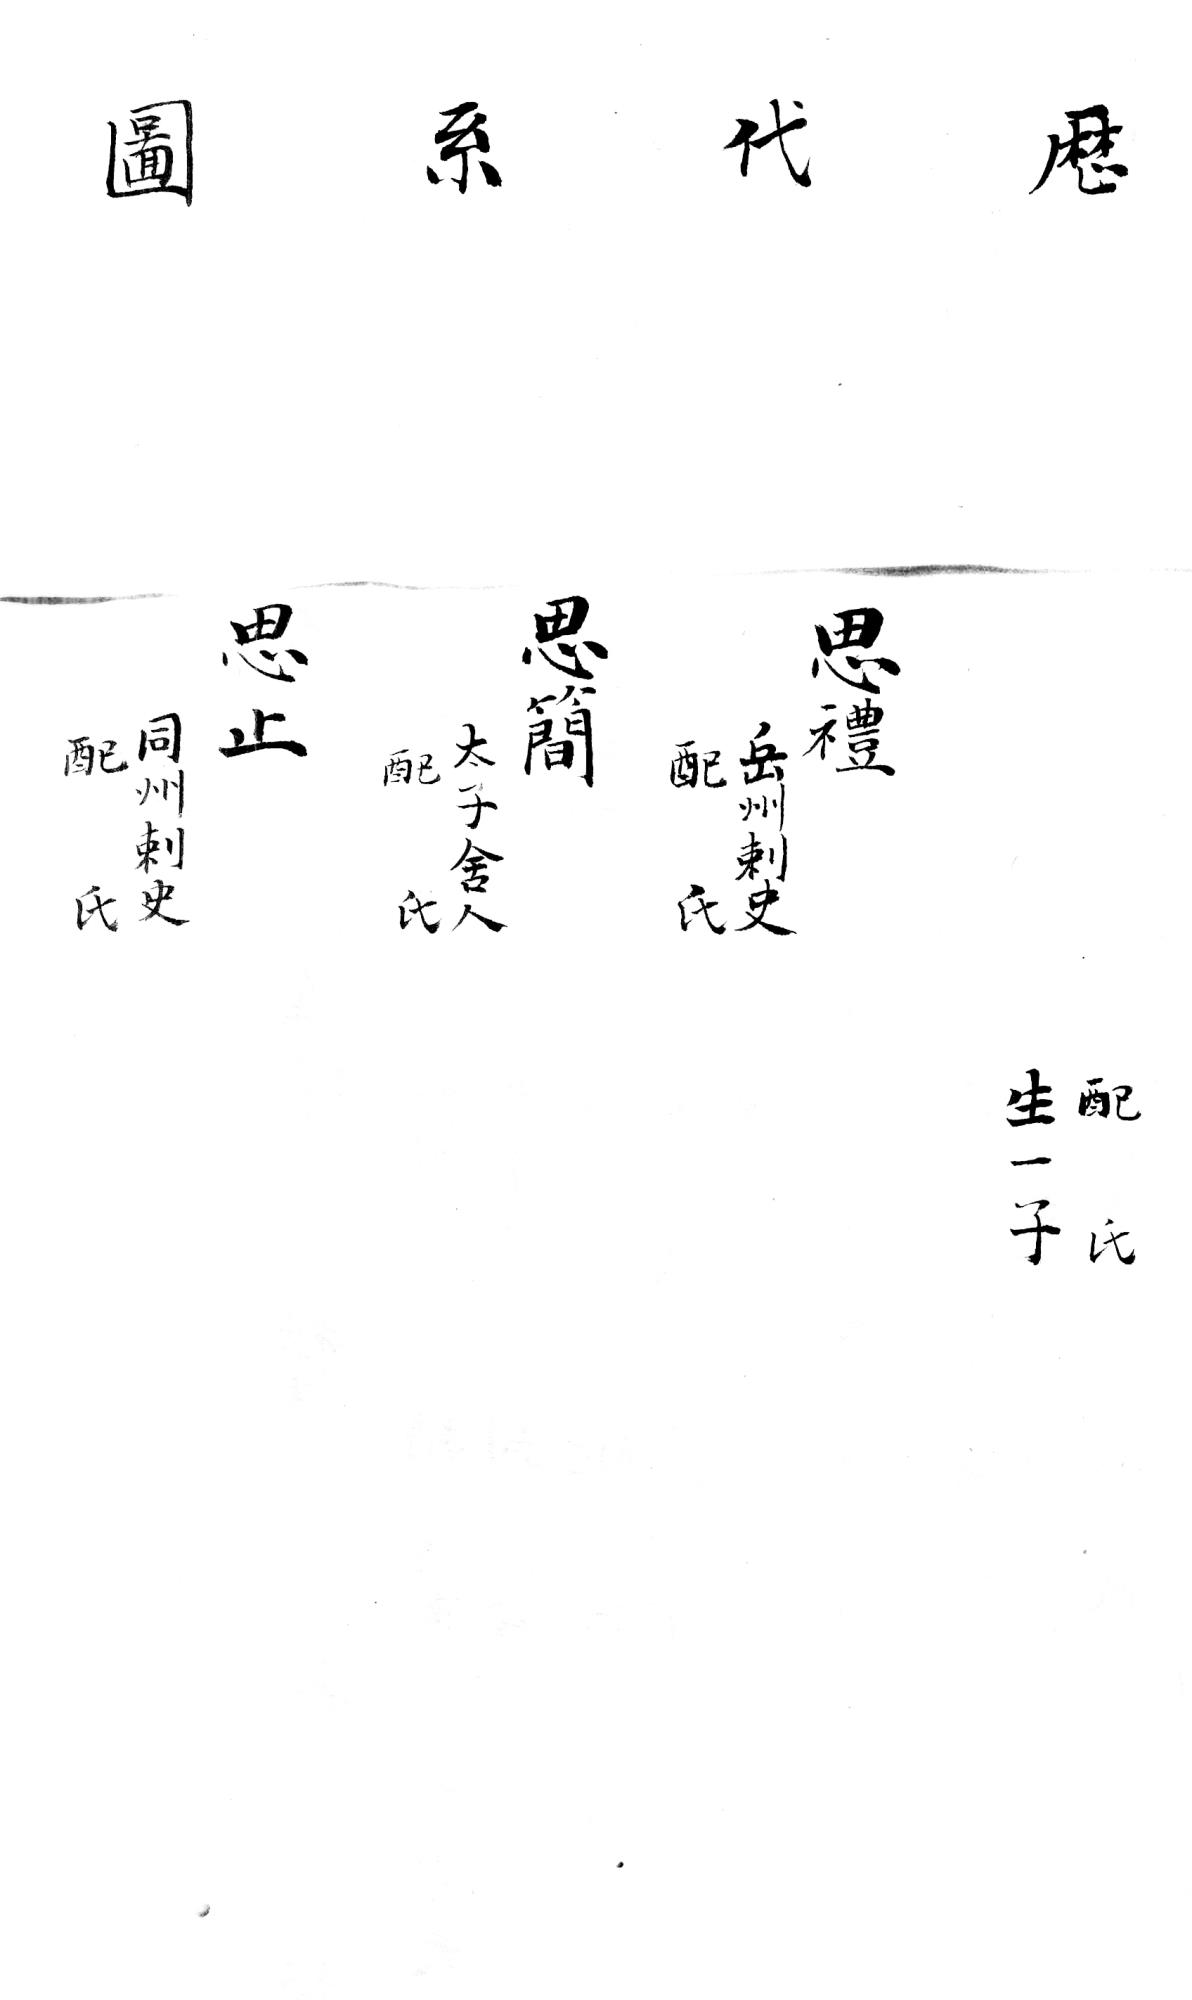 歷代系圖
配 氏
生一子
思禮
岳州刺史
配 氏
思簡
太子舍人
配 氏
思止
同州刺史
配 氏